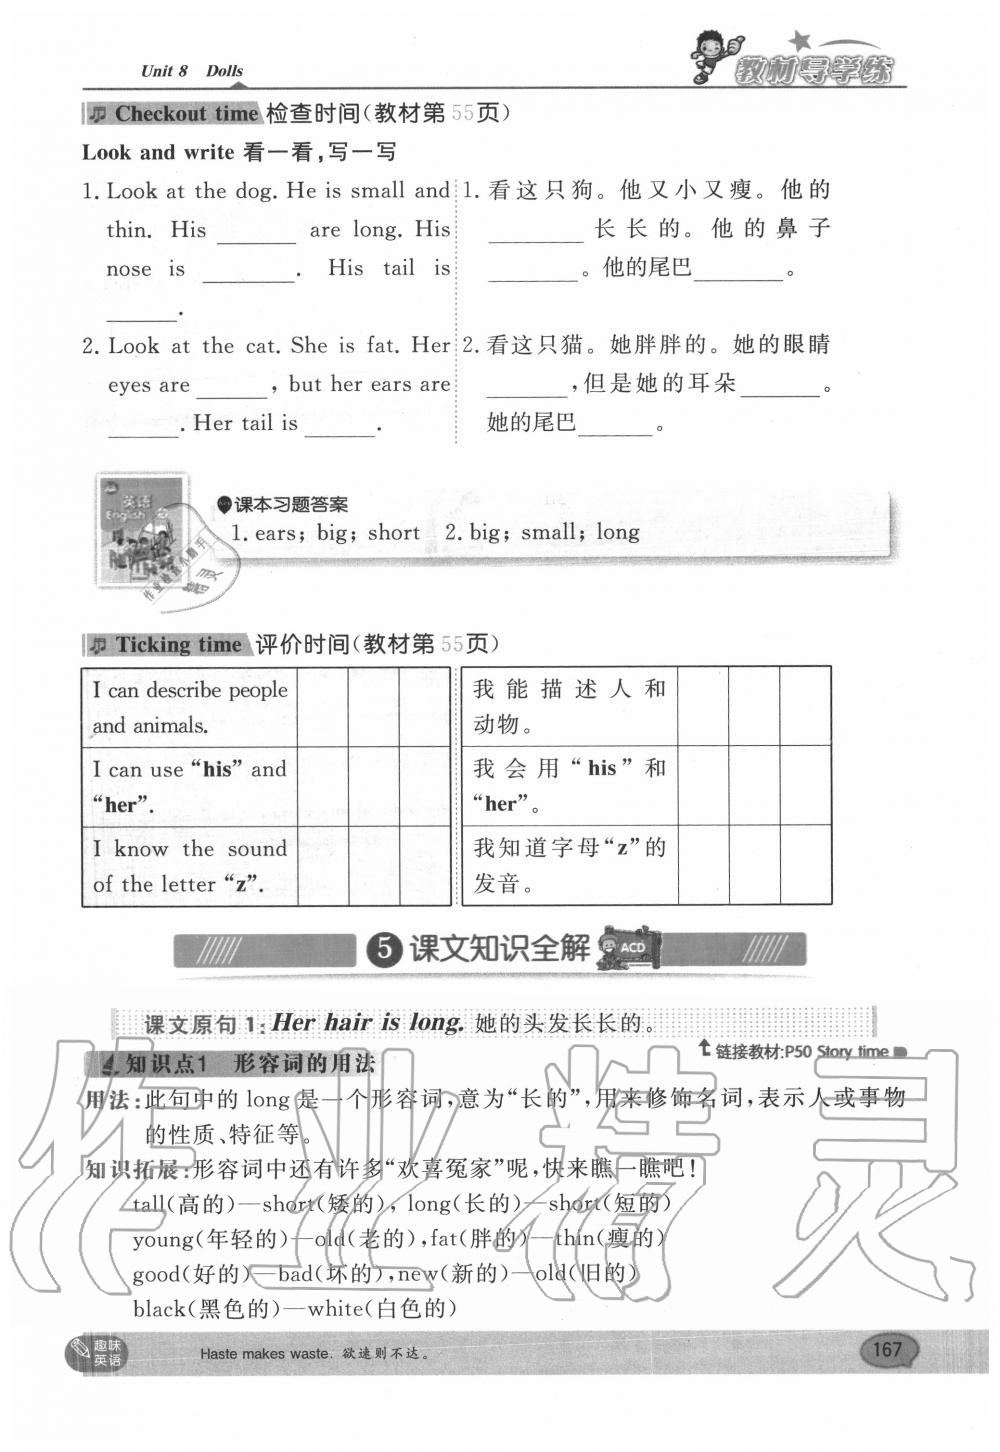 Unit 8 Dolls
教材导学练
Checkout time 检查时间(教材第55页)
Look and write 看一看,写一写
1. Look at the dog. He is small and
thin. His ______ are long. His
nose is ______. His tail is
______.
2. Look at the cat. She is fat. Her
eyes are ______, but her ears are
______. Her tail is ______.
1. 看这只狗。他又小又瘦。他的
______长长的。他的鼻子
______。他的尾巴______。
2. 看这只猫。她胖胖的。她的眼睛
______,但是她的耳朵______。
她的尾巴______。
英语
English
课本习题答案
1. ears; big; short 2. big; small; long
Ticking time 评价时间(教材第55页)
I can describe people
and animals.
I can use “his” and
“her”.
I know the sound
of the letter “z”.
我能描述人和
动物。
我会用“his”和
“her”。
我知道字母“z”的
发音。
5 课文知识全解 ACD
课文原句1: Her hair is long. 她的头发长长的。
链接教材:P50 Story time
知识点1 形容词的用法
用法:此句中的long是一个形容词,意为“长的”,用来修饰名词,表示人或事物
的性质、特征等。
知识拓展:形容词中还有许多“欢喜冤家”呢,快来瞧一瞧吧!
tall(高的)—short(矮的), long(长的)—short(短的)
young(年轻的)—old(老的),fat(胖的)—thin(瘦的)
good(好的)—bad(坏的),new(新的)—old(旧的)
black(黑色的)—white(白色的)
作业精灵
趣味
英语
Haste makes waste. 欲速则不达。
167